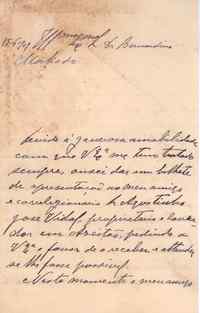 Devido á generosa amabilidade
com que V Exª me tem tratado
sempre, ousei dar um bilhete
de apresentação ao meu amigo
e correligionario Agostinho
José Vidal, proprietario e lavra-
dor em Oeiras, pedindo a
V Exª o favor de o receber e attender
se lhe fosse possivel
Neste momento o meu amigo